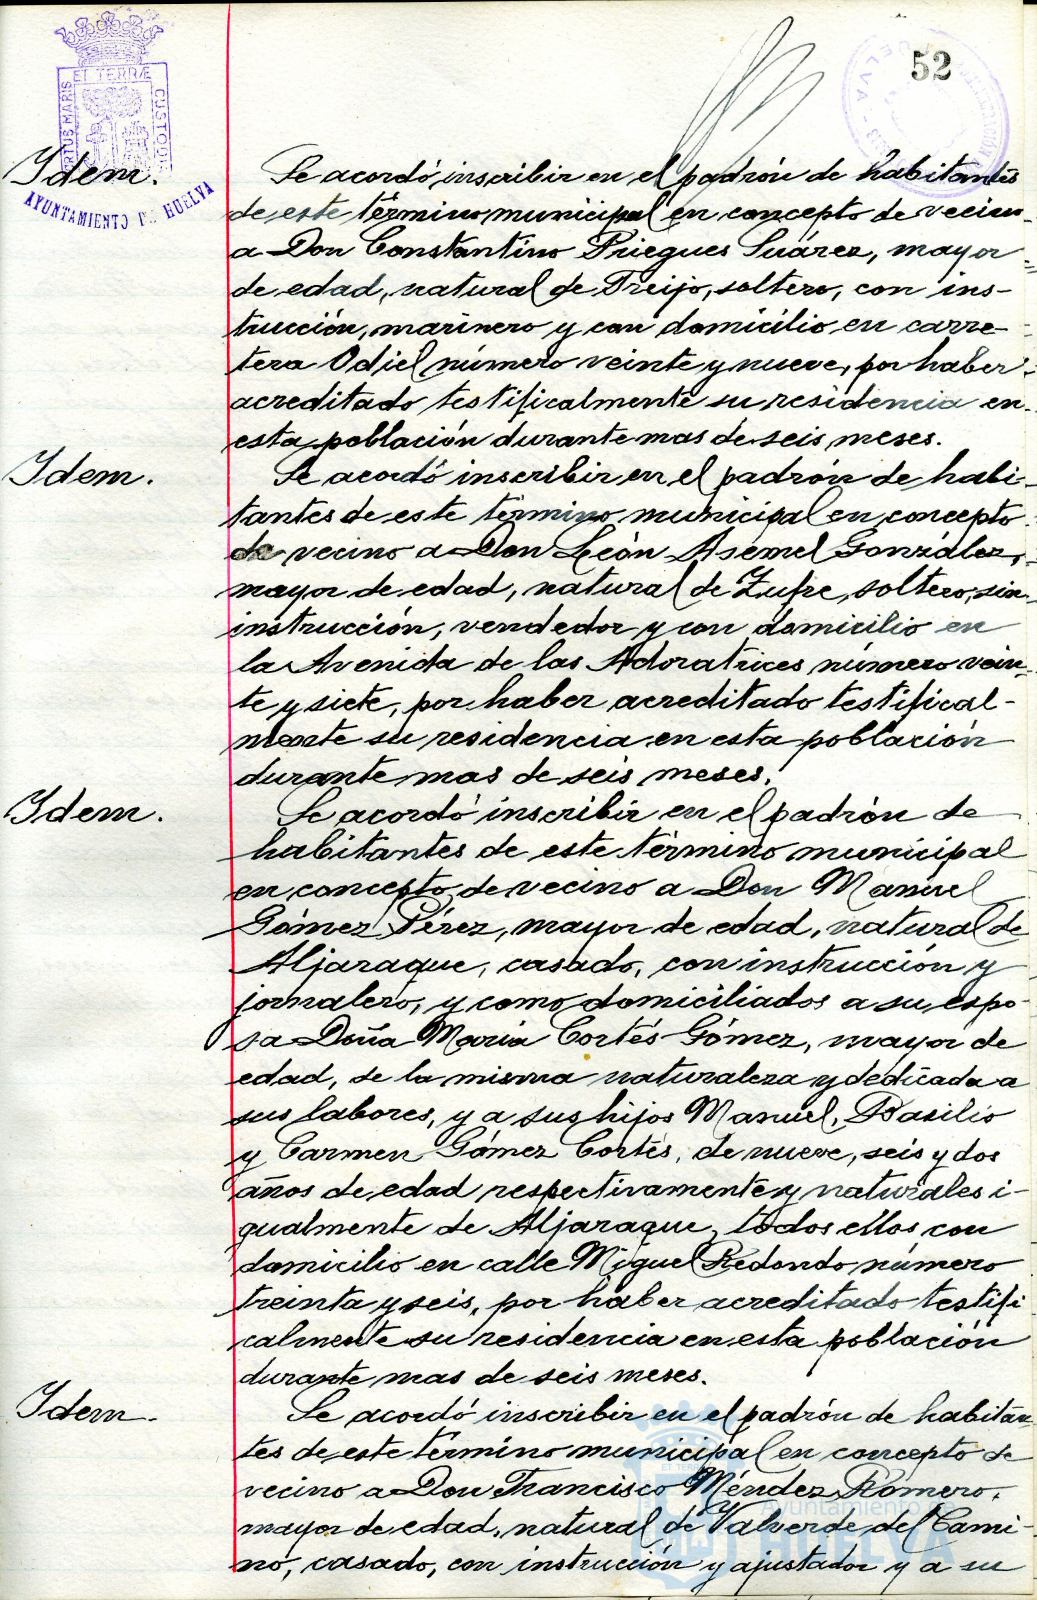 52
ET TERRÆ
PORTUS MARIS
CUSTODIA
AYUNTAMIENTO DE HUELVA
Idem.
Se acordó inscribir en el padrón de habitantes
de este término municipal en concepto de vecino
a Don Constantino Priegues Suárez, mayor
de edad, natural de Treijo, soltero, con ins-
trucción, marinero y con domicilio en carre-
tera Odiel número veinte y nueve, por haber
acreditado testificalmente su residencia en
esta población durante mas de seis meses.
Idem.
Se acordó inscribir en el padrón de habi-
tantes de este término municipal en concepto
de vecino a Don León Asemel González,
mayor de edad, natural de Zufre, soltero, sin
instrucción, vendedor y con domicilio en
la Avenida de las Adoratrices número vein-
te y siete, por haber acreditado testifical-
mente su residencia en esta población
durante mas de seis meses.
Idem.
Se acordó inscribir en el padrón de
habitantes de este término municipal
en concepto de vecino a Don Manuel
Gómez Pérez, mayor de edad, natural de
Aljaraque, casado, con instrucción y
jornalero, y como domiciliados a su espo-
sa Doña Maria Cortés Gómez, mayor de
edad, de la misma naturaleza y dedicada a
sus labores, y a sus hijos Manuel, Basilio
y Carmen Gómez Cortés, de nueve, seis y dos
años de edad respectivamente y naturales i-
gualmente de Aljaraque, todos ellos con
domicilio en calle Miguel Redondo número
treinta y seis, por haber acreditado testifi
calmente su residencia en esta población
durante mas de seis meses.
Idem.
Se acordó inscribir en el padrón de habitan
tes de este término municipal en concepto de
vecino a Don Francisco Méndez Romero,
mayor de edad, natural de Valverde del Cami-
no, casado, con instrucción y ajustador y a su
Ayuntamiento de
HUELVA